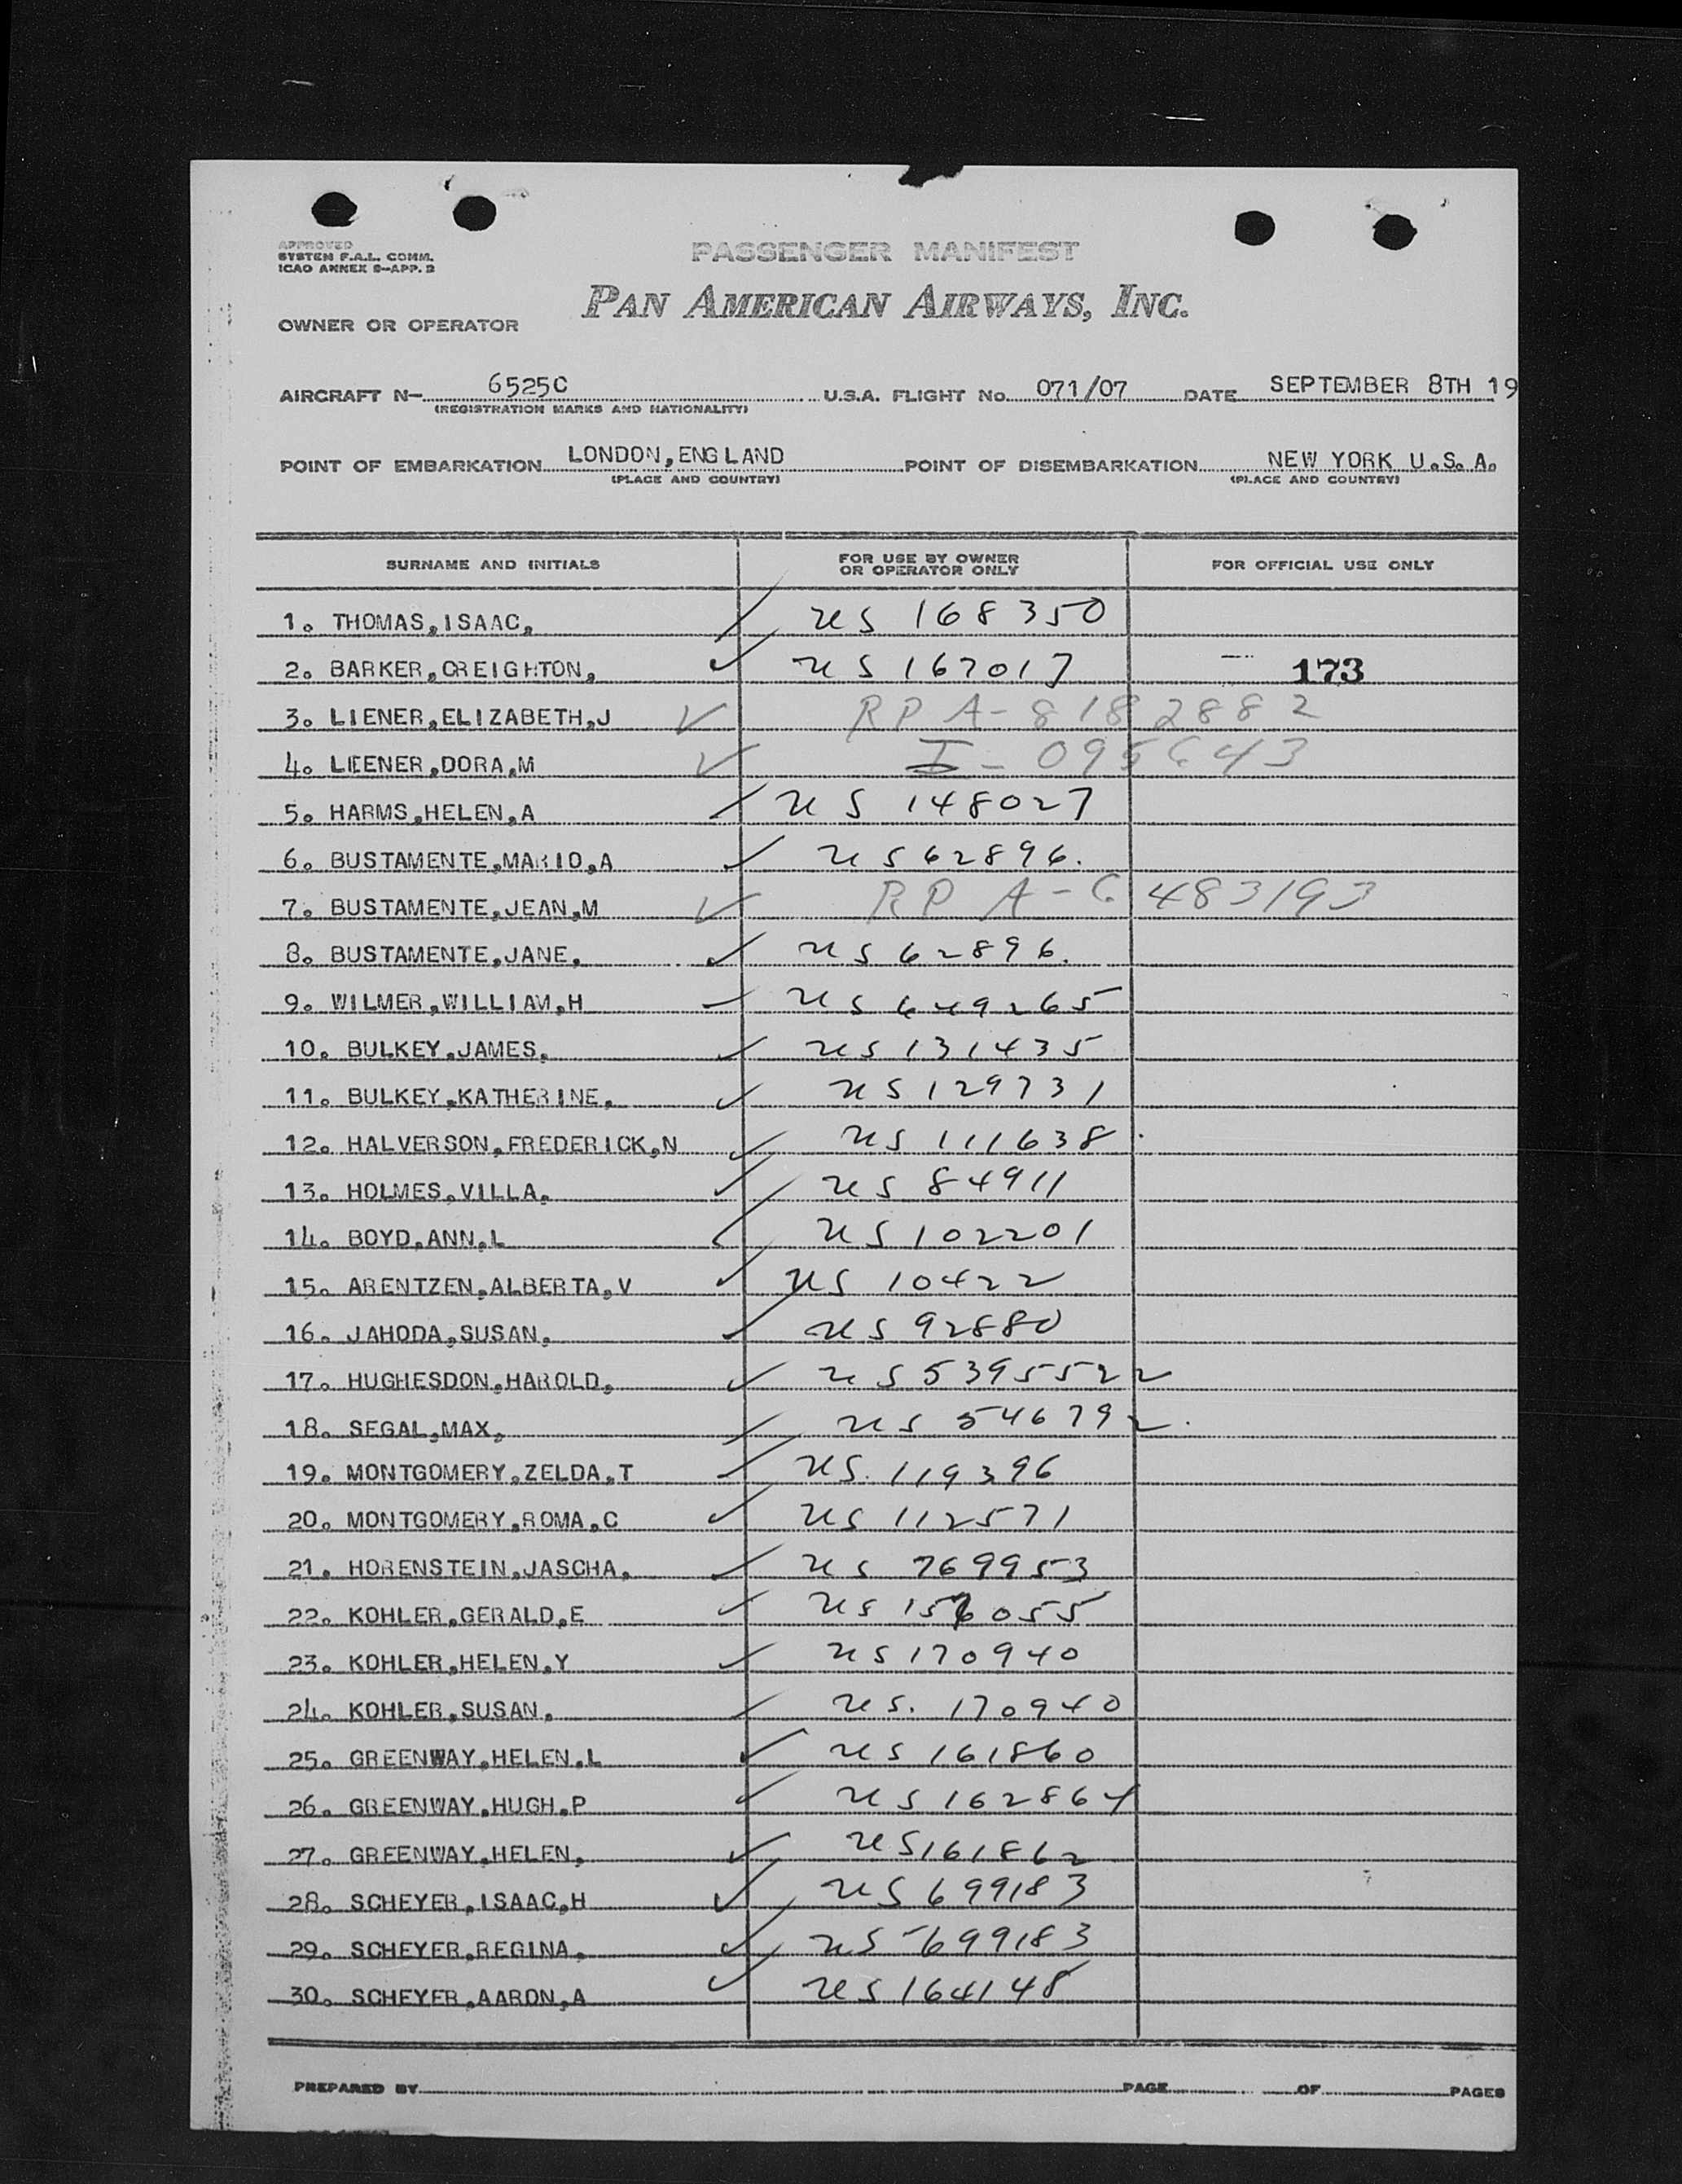 APPROVED
SYSTEM F.A.L. COMM.
ICAO ANNEX 9-APP. 3
PASSENGER MANIFEST
PAN AMERICAN AIRWAYS, INC.
OWNER OR OPERATOR
AIRCRAFT N- 6525C U.S.A. FLIGHT No. 071/07 DATE SEPTEMBER 8TH 19
(REGISTRATION MARKS AND NATIONALITY)
POINT OF EMBARKATION LONDON, ENGLAND POINT OF DISEMBARKATION NEW YORK U.S.A.
(PLACE AND COUNTRY) (PLACE AND COUNTRY)
SURNAME AND INITIALS FOR USE BY OWNER OR OPERATOR ONLY FOR OFFICIAL USE ONLY
1. THOMAS,ISAAC, US 168350
2. BARKER,CREIGHTON, US 167017 173
3. LIENER,ELIZABETH,J RP A-8182882
4. LIEENER,DORA,M I-
5. HARMS,HELEN,A US 148027
6. BUSTAMENTE,MARIO,A US 62896.
7. BUSTAMENTE,JEAN,M RP A-6483193
8. BUSTAMENTE,JANE, US 62896.
9. WILMER,WILLIAM,H US 649265
10. BULKEY,JAMES, US 131435
11. BULKEY,KATHERINE, US 129731
12. HALVERSON,FREDERICK,N US 111638
13. HOLMES,VILLA, US 84911
14. BOYD,ANN,L US 102201
15. ARENTZEN,ALBERTA,V US 10422
16. JAHODA,SUSAN, US 92880
17. HUGHESDON,HAROLD, US 5395522
18. SEGAL,MAX, US 546792
19. MONTGOMERY,ZELDA,T US. 119396
20. MONTGOMERY,ROMA,C US 112571
21. HORENSTEIN,JASCHA, US 769953
22. KOHLER,GERALD,E US
23. KOHLER,HELEN,Y US 170940
24. KOHLER,SUSAN, US. 170940
25. GREENWAY,HELEN,L US 161860
26. GREENWAY,HUGH,P US 162864
27. GREENWAY,HELEN, US 161862
28. SCHEYER,ISAAC,H US 699183
29. SCHEYER,REGINA, US 699183
30. SCHEYER,AARON,A US 164148
PREPARED BY PAGE OF PAGES